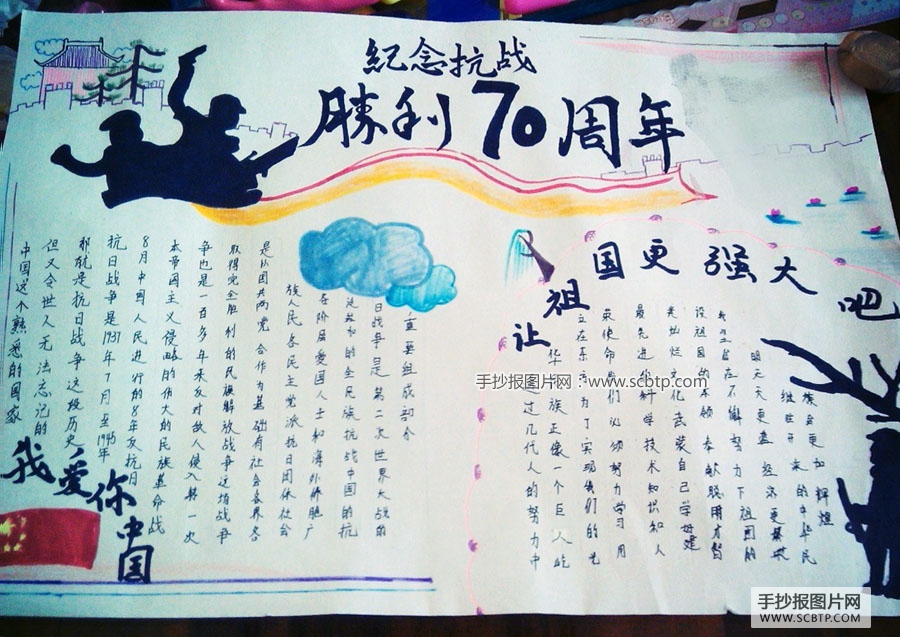 紀念抗战
勝利70周年
中国这个熟悉的国家
但又令世人无法忘记的
那就是抗日战争这段历史
抗日战争是1937年7月至1945年
8月中国人民进行的8年反抗日
本帝国主义侵略的伟大的民族革命战
争也是一百多年来反对敌人侵入第一次
取得完全胜利的民族解放战争这场战争
是以国共两党 合作为基础有社会各界各
族人民各民主党派抗日团体社会
各阶层爱国人士和海外侨胞广
泛参加的全民族抗战中国的抗
日战争是第二次世界大战的
重要组成部分
我爱你中国
让祖国更强大吧
通过几代人的努力中
华民族正像一个巨人屹
立在东方为了实现我们的光
荣使命我们必须努力学习用
最先进的科学技术知识和人
类灿烂文化武装自己学好建
设祖国的本领 奉献聪明才智
在不懈努力下祖国的
明天更 经济更繁荣
来的中华民
族会更加辉煌
手抄报图片网：www.scbtp.com
手抄报图片网
WWW.SCBTP.COM